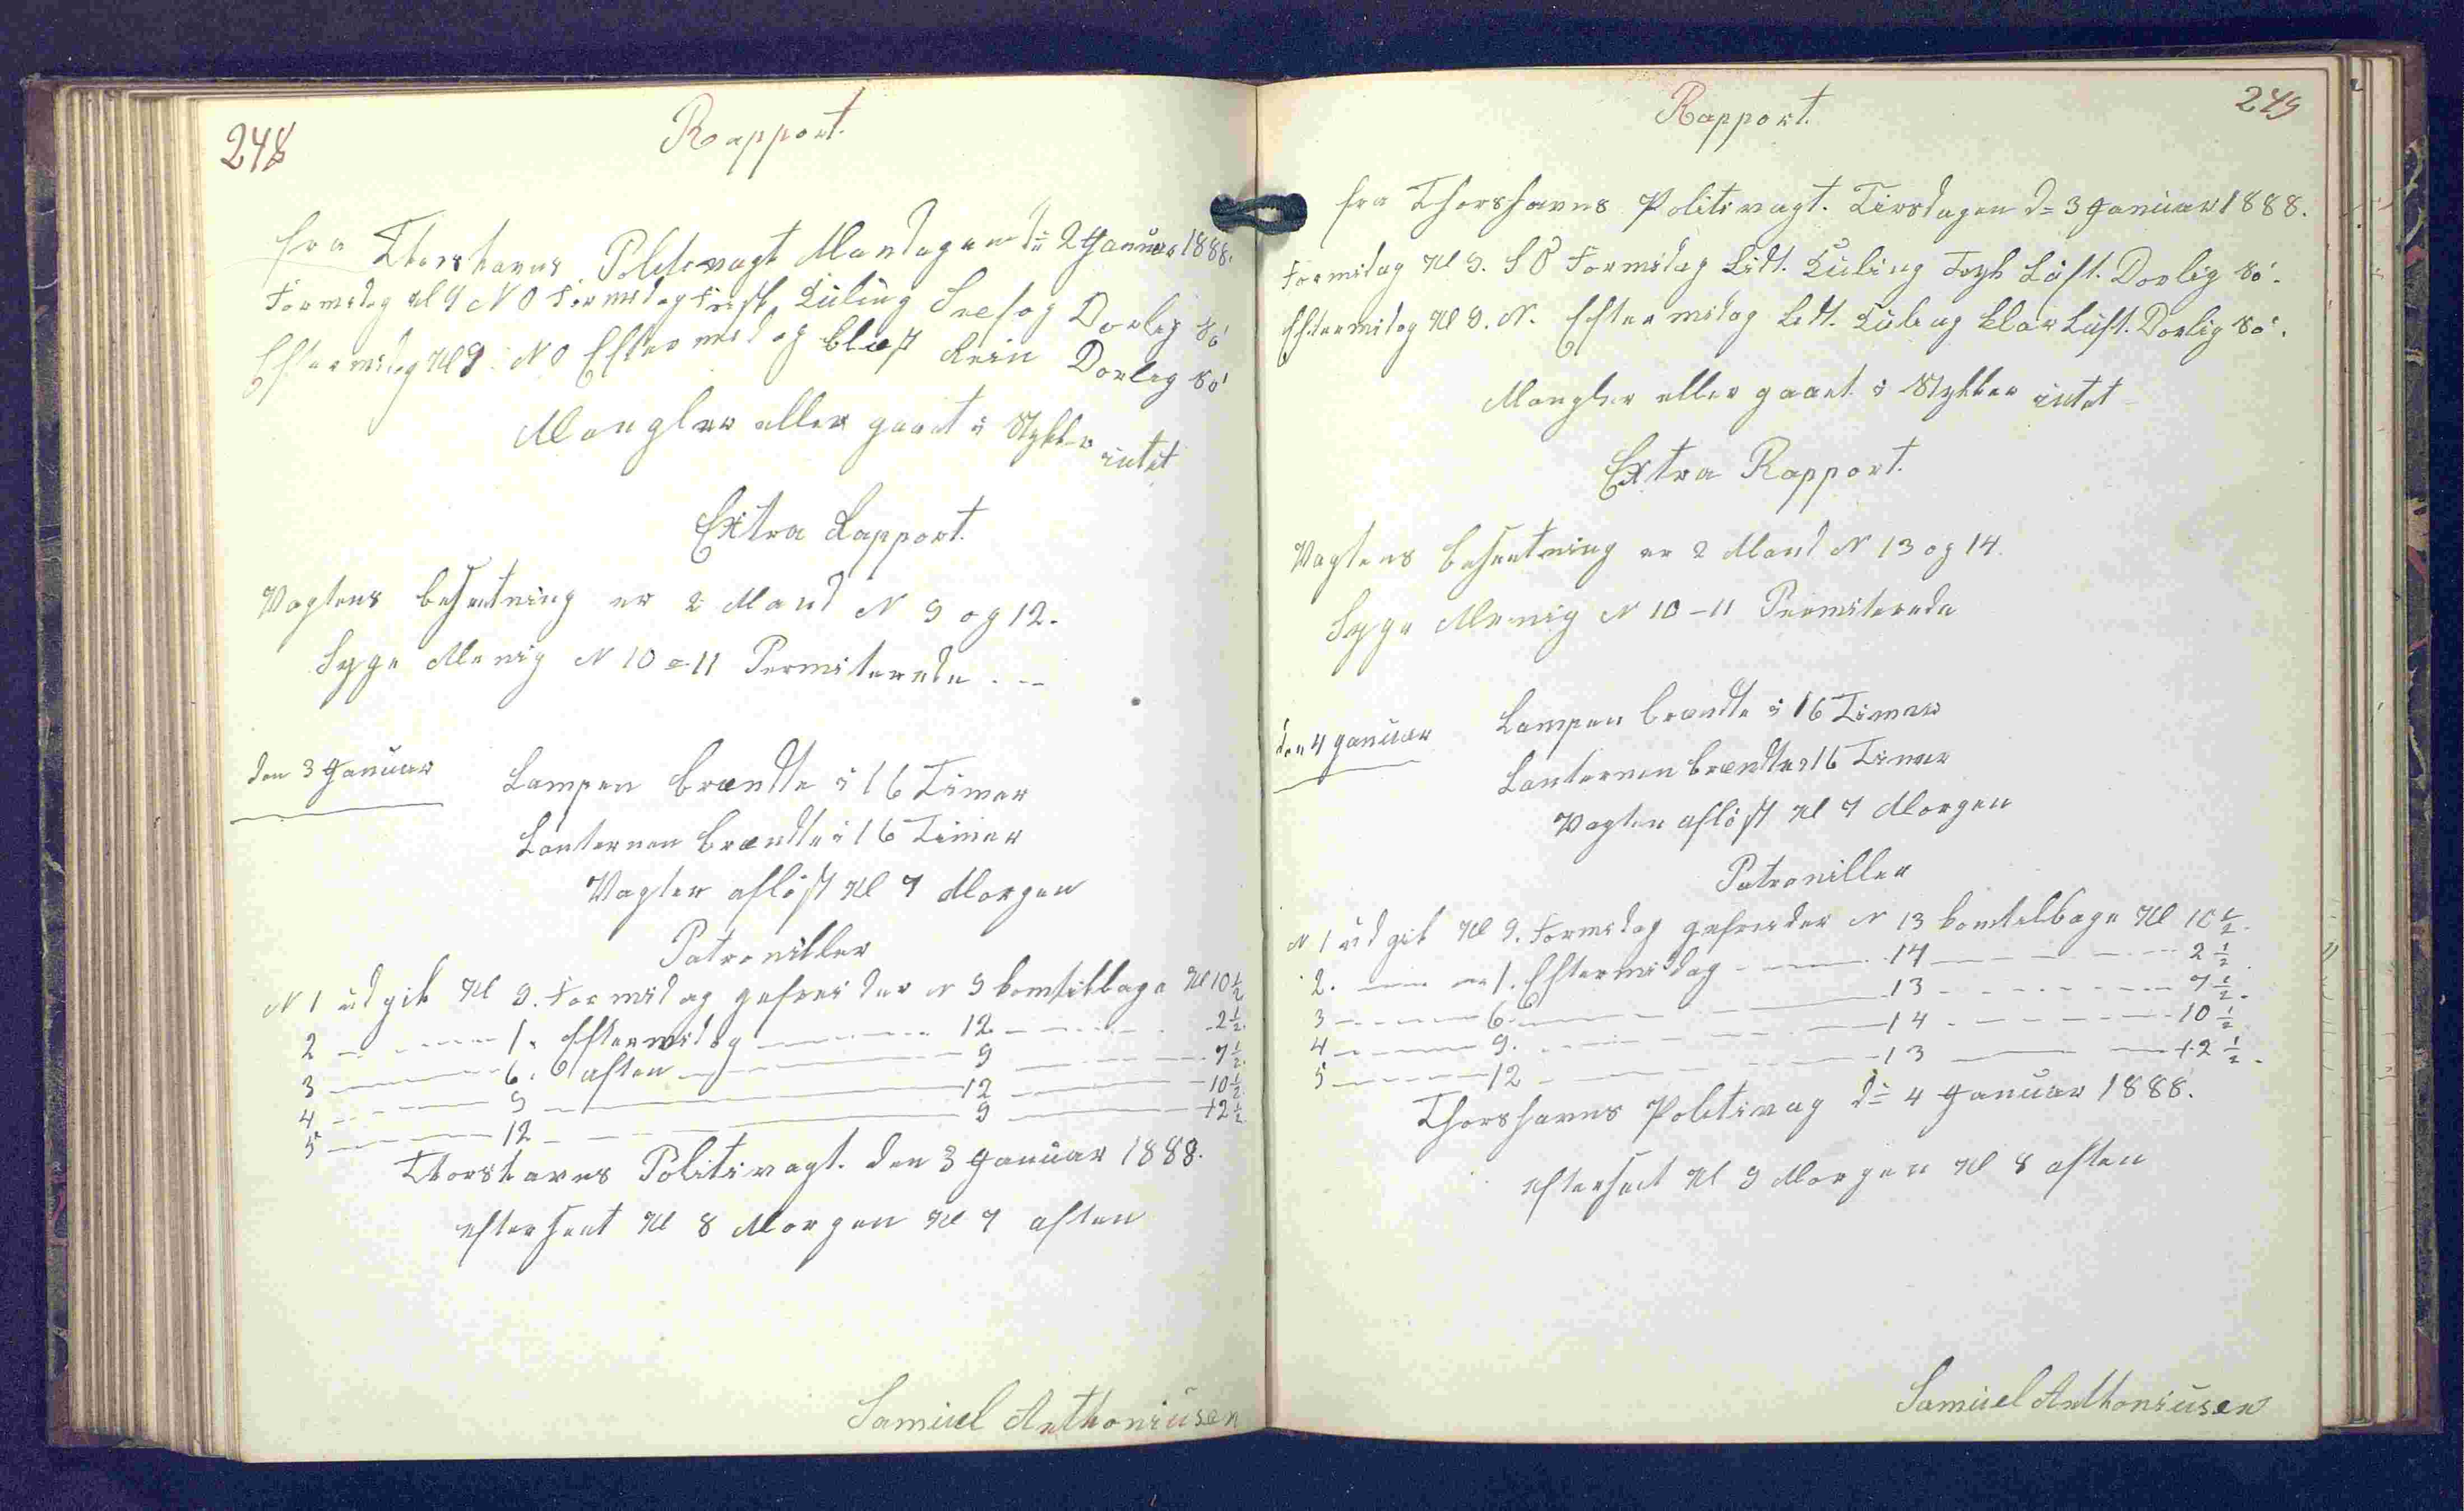 248
Rapport.
fra Thorshavns Politivagt Mandagen dn 2 Januar 1888.
Formidag Kl 9 NO Formidag frisk Kuling Snefog Dorlig Sö
Eftermidag Kl 9. NO Eftermidag blæst Rein Dorlig Sö
Mangler eller gaaet i Stykker intet
Extra Rapport.
Vagtens besætning er 2 Mand N 9 og 12.
Syge Menig N 10 = 11 Permiterede . —
den 3 Januar
Lampen brændte i 16 Timer
Lanternen brændte i 16 Timer
Vagten aflöst Kl 7 Morgen
Patroniller
N 1 udgik Kl 9. Formidag gefreider N 9 komtilbage Kl 10 1/2
2 — — — 1. Eftermidag — — 12 — — — 2 1/2.
3 — — 6. aften — — 9 — — 7 1/2.
4 — — 9 — — 12 — — 10 1/2
5 — — 12 — — 9 — — 12 1/2
Thorshavns Politivagt. den 3 Januar 1888.
efterseet Kl 8 Morgen Kl 7 aften
Samuel Anthoniusen
249
Rapport.
fra Thorshavns Politivagt. Tirsdagen d= 3 Januar 1888.
Formidag Kl 9. SO Formidag Lidt. Kuling Tyk Luft. Dorlig Sö.
Eftermidag Kl 9. N. Eftermidag Lidt. Kuling klar Luft. Dorlig Sö.
Mangler eller gaaet i Stykker intet
Extra Rapport.
Vagtens besætning er 2 Mand N 13 og 14.
Syge Menig N 10 – 11 Permiterede
den 4 Januar
Lampen brændte i 16 Timer
Lanternen brændte i 16 Timer
Vagten aflöst Kl 7 Morgen
Patroniller
N 1 udgik Kl 9. Formidag gefreider N 13 komtelbage Kl 10 1/2.
2. — — 1. Eftermidag — — 14 — — — 2 1/2.
3 — — 6 — — 13 — — 7 1/2.
4 — — 9. — — 14 — — 10 1/2
5 — — 12 — — 13 — — 12 1/2.
Thorshavns Politivag d= 4 Januar 1888.
efterseet Kl 9 Morgen Kl 8 aften
Samuel Anthoniusen